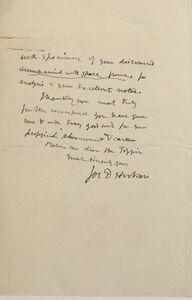 with specimen of your discovered
accompanied with spare pieces for
analysis & your excellent notes.
Thanking you most truly
for the correspond you have given
me & with every good wish for your
& career
Believe me dear Mr Toppin
Most sincerely yours
Jos D Hooker